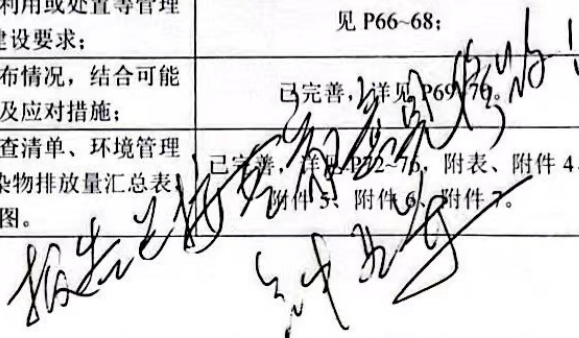 利用或处置等管理
建设要求;
见 P66~68;
布情况，结合可能
及应对措施;
已完善，详见 P69~70。
查清单、环境管理
染物排放量汇总表、
图。
已完善，详见 P72~76，附表、附件 4、
附件 5、附件 6、附件 7。
报告已按专家意见修改!